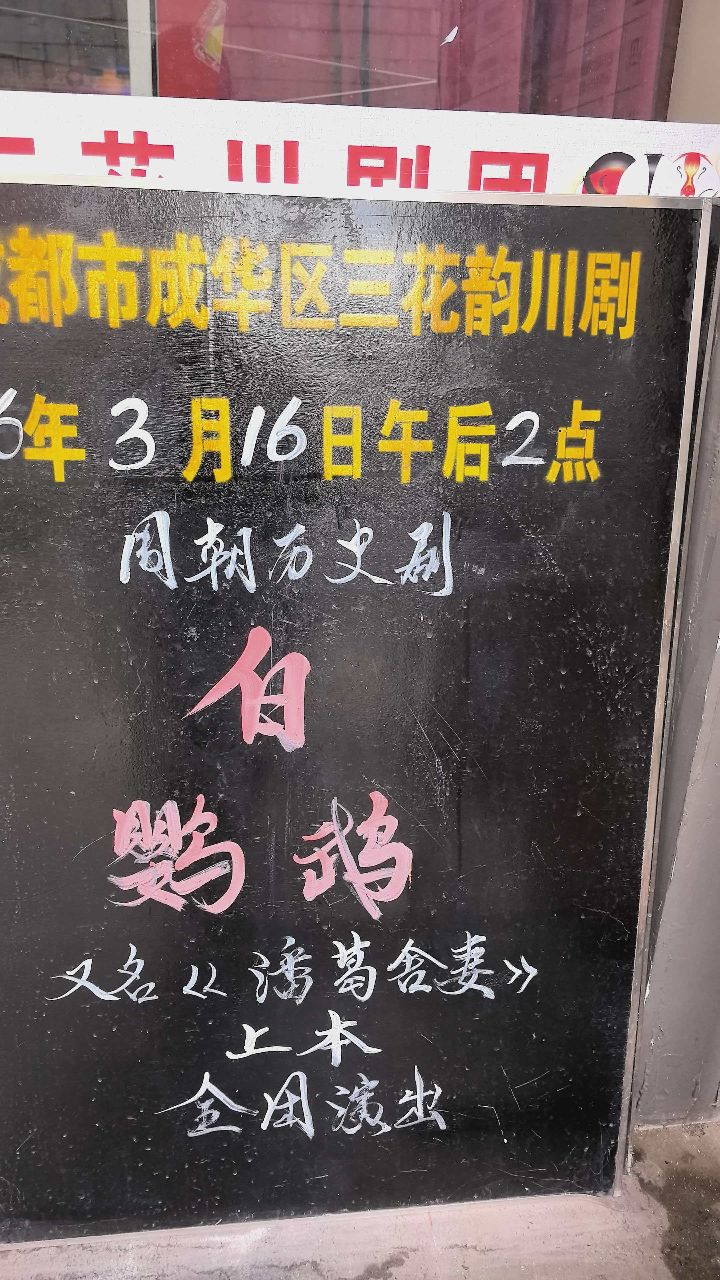 三花川剧团
成都市成华区三花韵川剧
6年3月16日午后2点
周朝历史剧
白
鹦鹉
又名《潘葛舍妻》
上本
全团演出